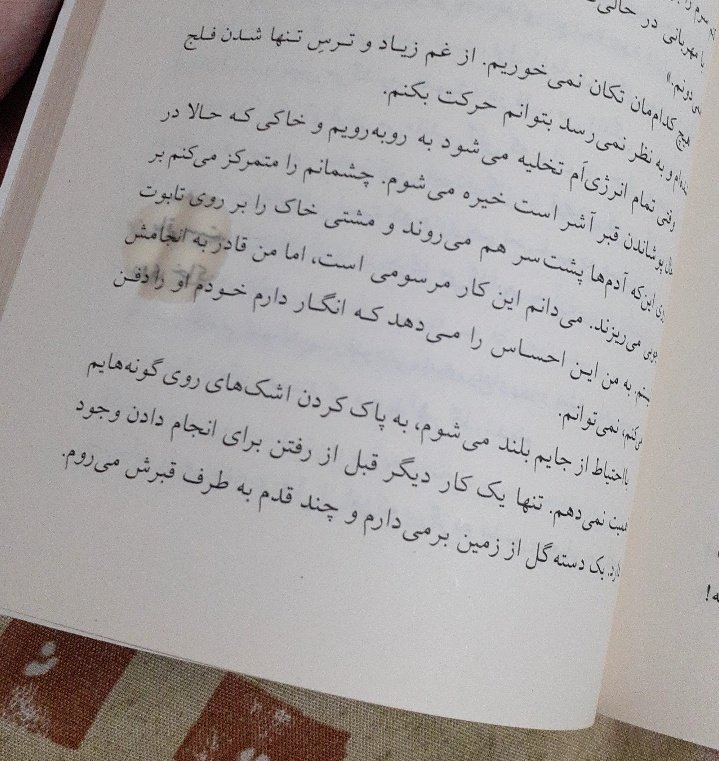 با مهربانی در حالی
می‌دونم.»
هیچ کدام‌مان تکان نمی‌خوریم. از غم زیاد و ترسِ تنها شدن فلج
شده‌ام و به نظر نمی‌رسد بتوانم حرکت بکنم.
وقتی تمام انرژی‌اَم تخلیه می‌شود به روبه‌رویم و خاکی که حالا در
حال پوشاندن قبر آشر است خیره می‌شوم. چشمانم را متمرکز می‌کنم بر
روی این‌که آدم‌ها پشت‌سر هم می‌روند و مشتی خاک را بر روی تابوت
چوبی می‌ریزند. می‌دانم این کار مرسومی است، اما من قادر به انجامش
نیستم. به من این احساس را می‌دهد که انگار دارم خودم او را دفن
می‌کنم، نمی‌توانم.
بااحتیاط از جایم بلند می‌شوم، به پاک کردن اشک‌های روی گونه‌هایم
اهمیت نمی‌دهم. تنها یک کار دیگر قبل از رفتن برای انجام دادن وجود
دارد. یک دسته گل از زمین برمی‌دارم و چند قدم به طرف قبرش می‌روم.